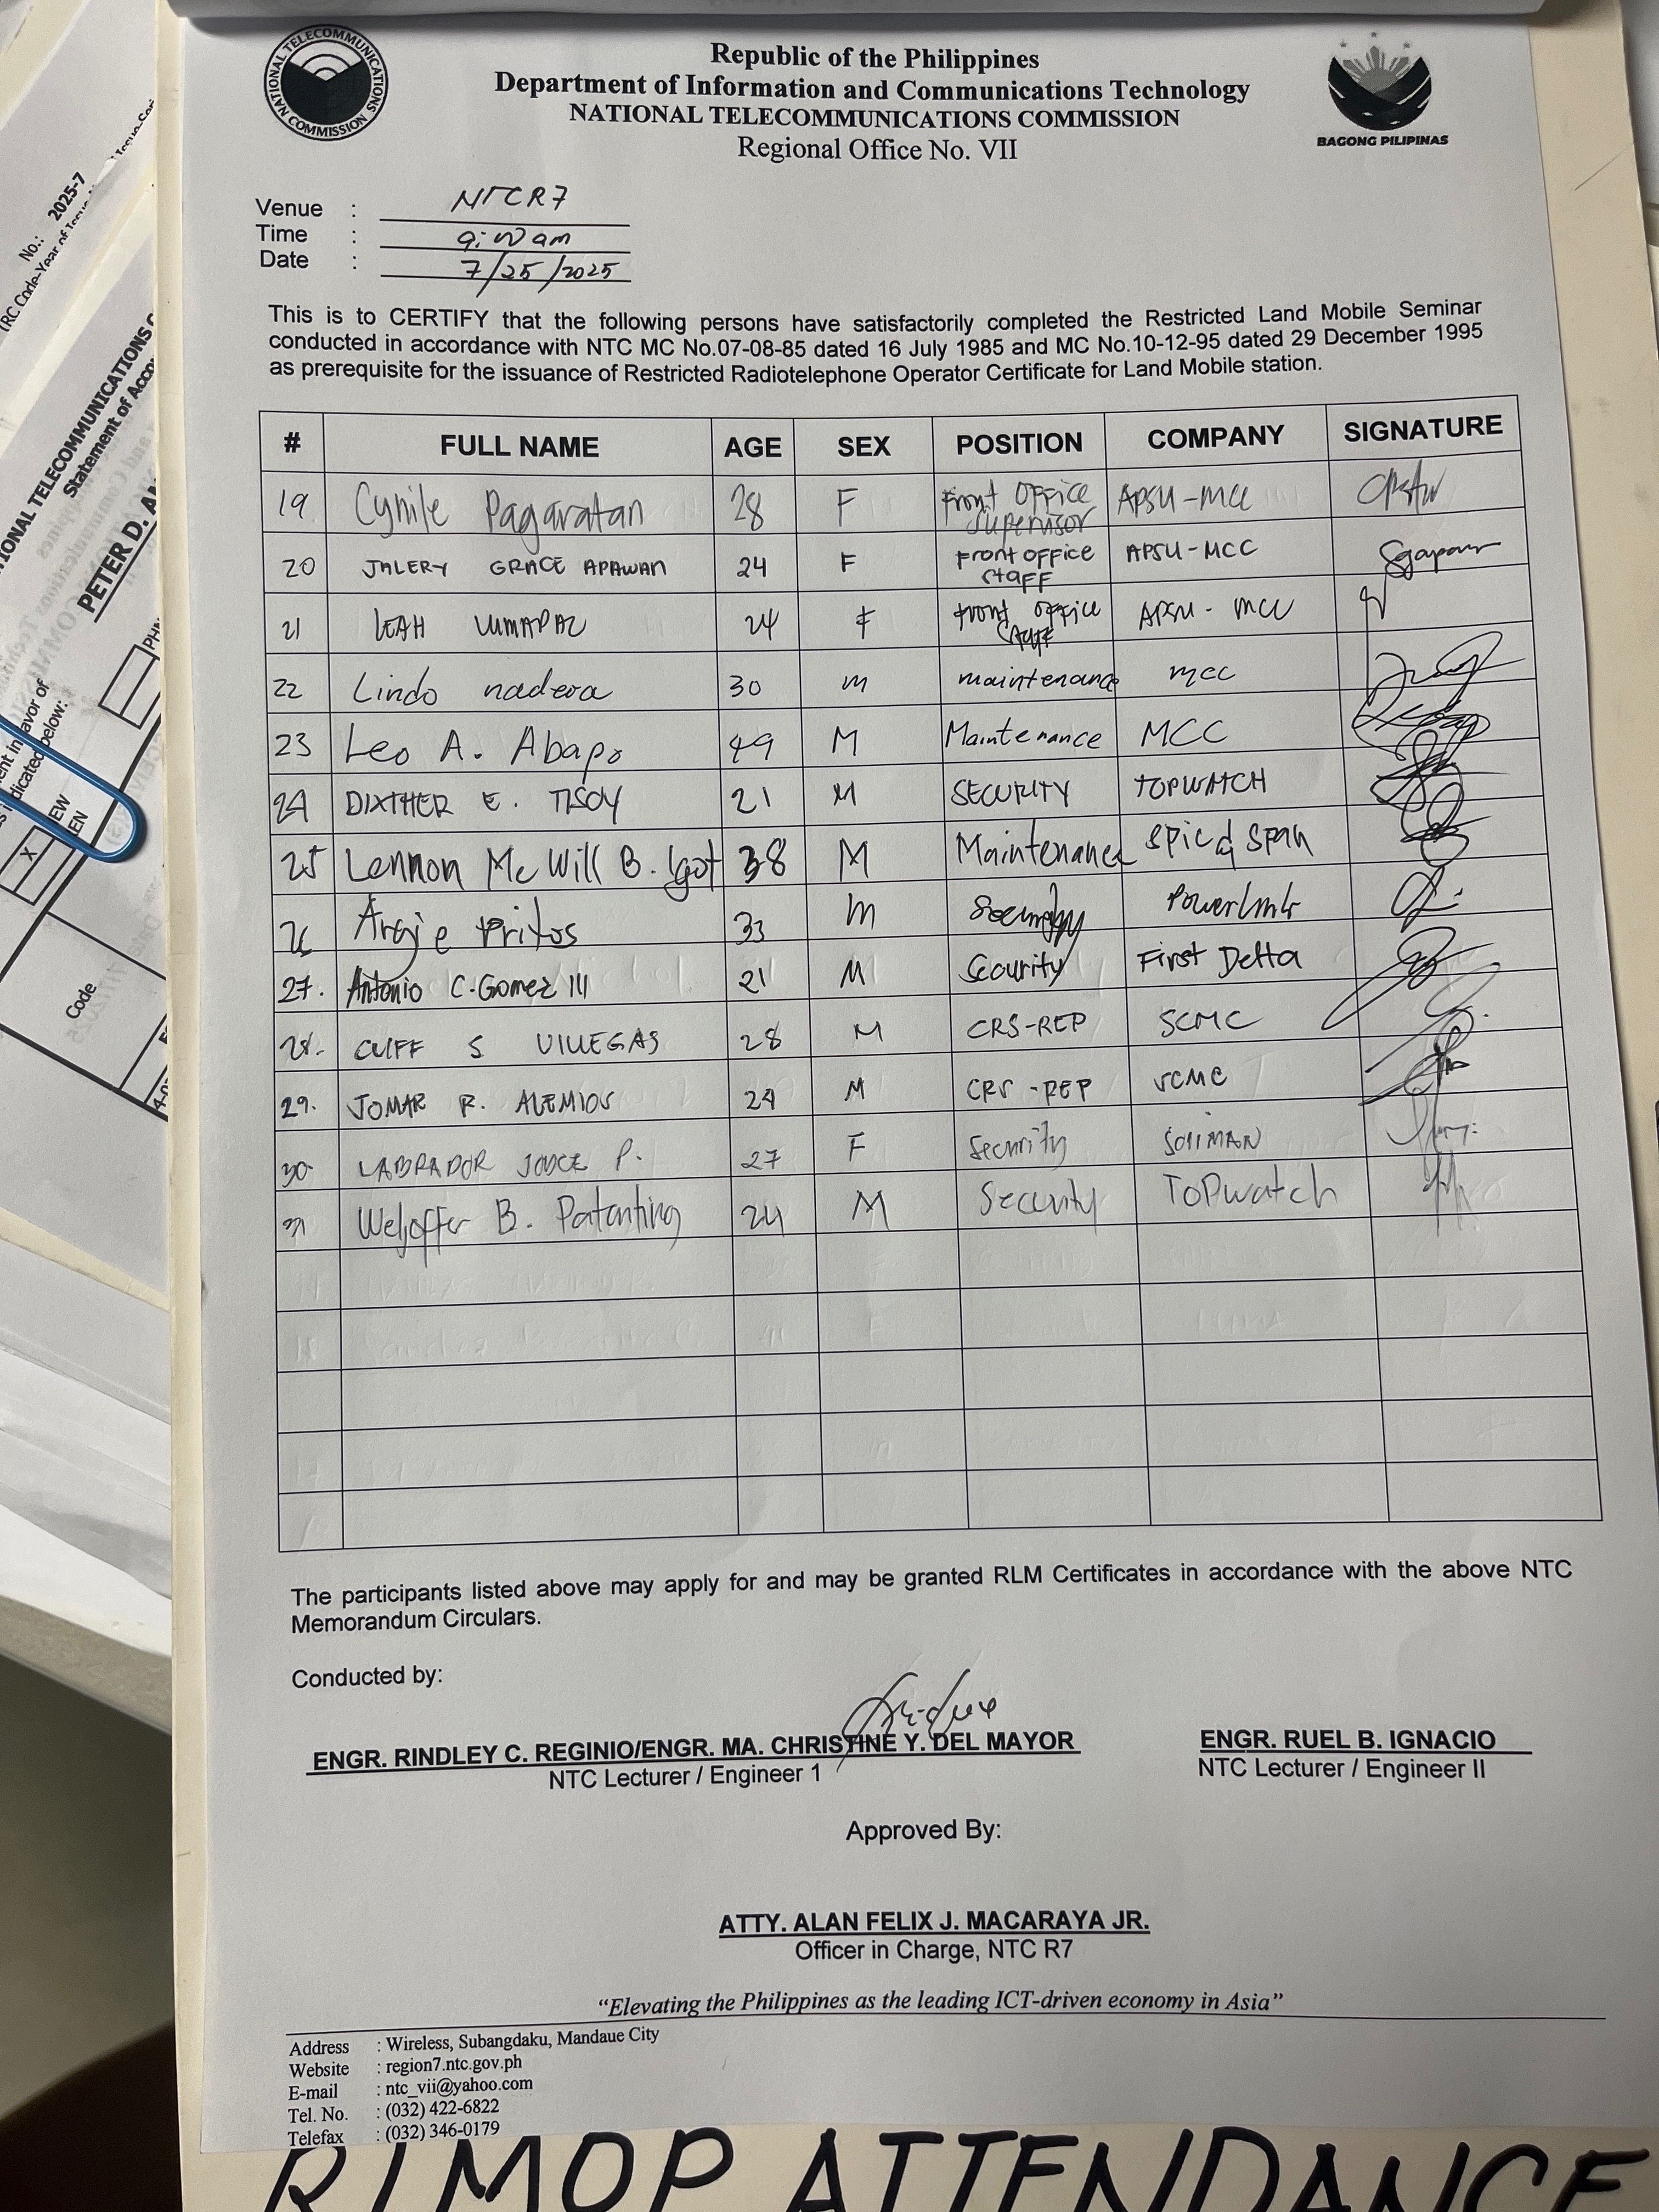 NATIONAL TELECOMMUNICATIONS COMMISSION
Republic of the Philippines
Department of Information and Communications Technology
NATIONAL TELECOMMUNICATIONS COMMISSION
Regional Office No. VII
BAGONG PILIPINAS
Venue : NTCR7
Time : 9:00am
Date : 7/25/2025
This is to CERTIFY that the following persons have satisfactorily completed the Restricted Land Mobile Seminar
conducted in accordance with NTC MC No.07-08-85 dated 16 July 1985 and MC No.10-12-95 dated 29 December 1995
as prerequisite for the issuance of Restricted Radiotelephone Operator Certificate for Land Mobile station.
# FULL NAME AGE SEX POSITION COMPANY SIGNATURE
19 Cynile Pagaratan 28 F Front Office Supervisor APSU-MCC
20 JALERY GRACE APAWAN 24 F Front office Staff APSU-MCC
21 LEAH LUMAPAZ 24 F Front office Staff APSU-MCC
22 Lindo nadera 30 m maintenance mcc
23 Leo A. Abapo 49 M Maintenance MCC
24 DIXTHER E. TISOY 21 M SECURITY TOPWATCH
25 Lennon Mc Will B. Igot 38 M Maintenance Spic & Span
26 Argie 33 m Security Powerlink
27. Antonio C. Gomez III 21 M Security First Delta
28. CLIFF S VILLEGAS 28 M CRS-REP SCMC
29. JOMAR R. ALEMIOS 24 M CRS-REP SCMC
30. LABRADOR JOYCE P. 27 F Security SOLIMAN
31 Weljoffer B. Patenting 24 M Security TOPwatch
The participants listed above may apply for and may be granted RLM Certificates in accordance with the above NTC
Memorandum Circulars.
Conducted by:
ENGR. RINDLEY C. REGINIO/ENGR. MA. CHRISTINE Y. DEL MAYOR ENGR. RUEL B. IGNACIO
NTC Lecturer / Engineer 1 NTC Lecturer / Engineer II
Approved By:
ATTY. ALAN FELIX J. MACARAYA JR.
Officer in Charge, NTC R7
“Elevating the Philippines as the leading ICT-driven economy in Asia”
Address : Wireless, Subangdaku, Mandaue City
Website : region7.ntc.gov.ph
E-mail : ntc_vii@yahoo.com
Tel. No. : (032) 422-6822
Telefax : (032) 346-0179
RLMOP ATTENDANCE
No.: 2025-7
TELECOMMUNICATIONS
Statement of
PETER D.
indicated below:
X
Code